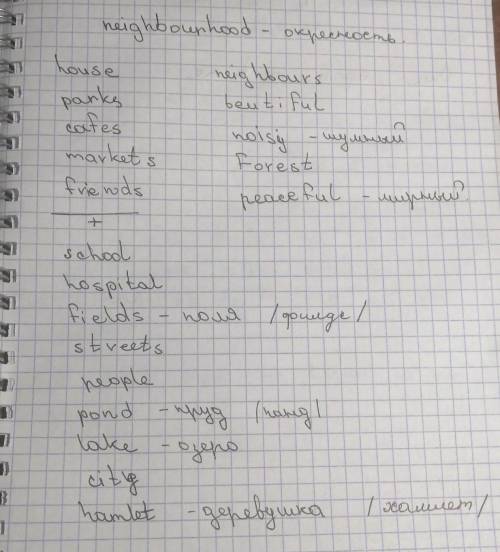 neighbourhood - окресность.
house neighbours
parks beutiful
cafes noisy - шумный
markets Forest
friends peaceful - мирный
+
school
hospital
fields - поля /филде/
streets
people
pond - пруд /панд/
lake - озеро
city
hamlet - деревушка /хамлет/